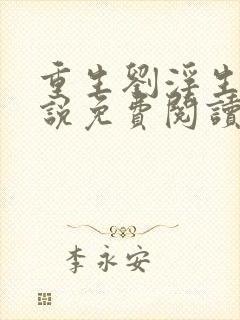 重生劉淫生
說免費閱讀
李永安